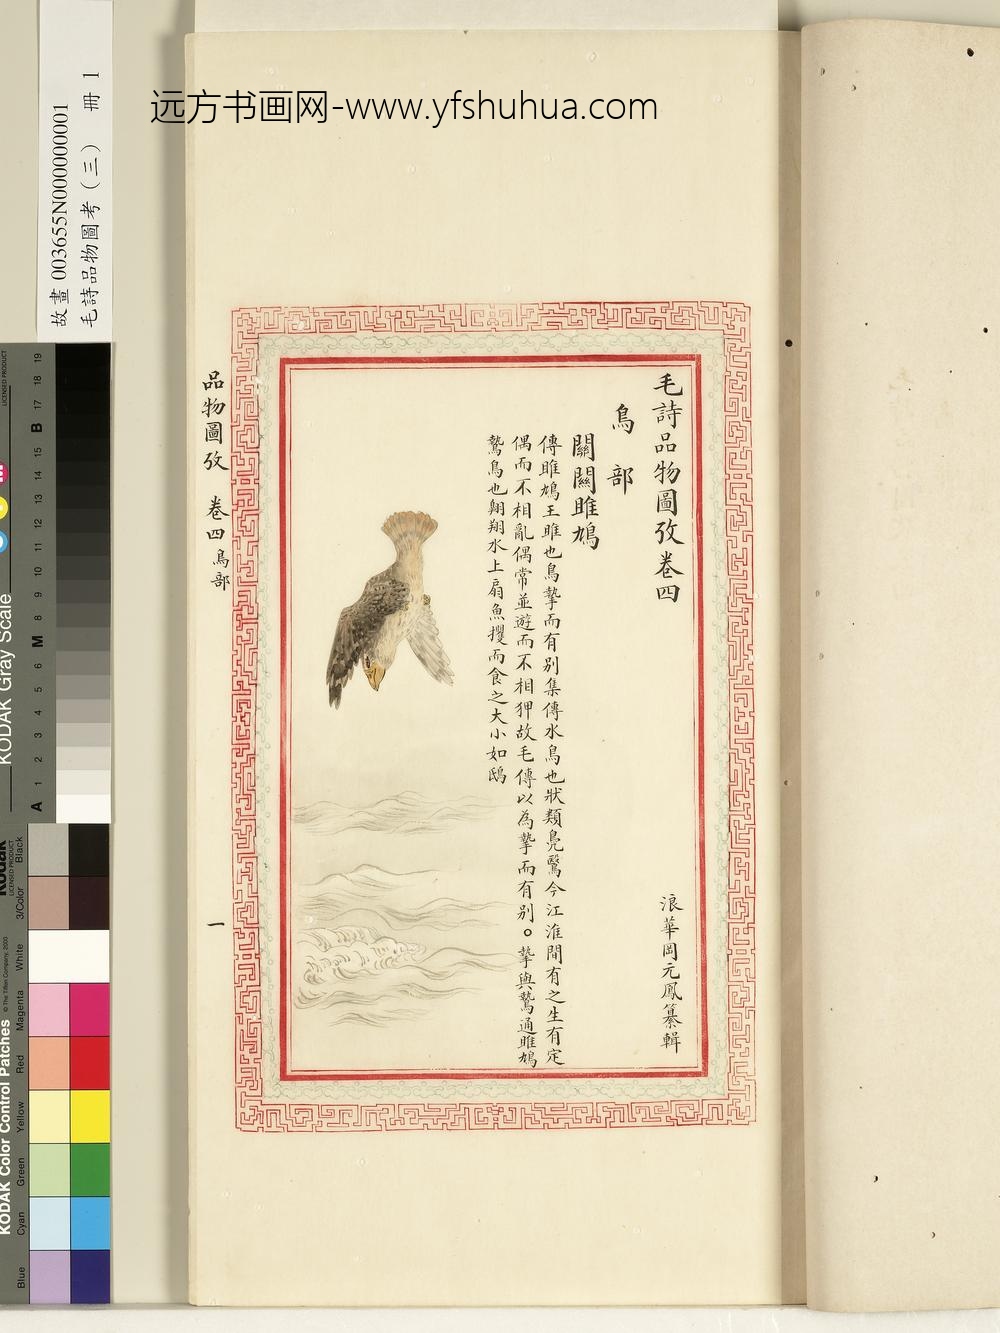 远方书画网-www.yfshuhua.com
故畫 003655N000000001
毛詩品物圖考（三） 冊 1
毛詩品物圖攷卷四
浪華岡元鳳纂輯
鳥部
關關雎鳩
傳雎鳩王雎也鳥摯而有別集傳水鳥也狀類鳧鷖今江淮間有之生有定
偶而不相亂偶常並遊而不相狎故毛傳以為摯而有別。摯與鷙通雎鳩
鷙鳥也翱翔水上扇魚攫而食之大小如鴟
品物圖攷 卷四 鳥部
一
KODAK Gray Scale
LICENSED PRODUCT
A 1 2 3 4 5 6 M 8 9 10 11 12 13 14 15 B 17 18 19
KODAK Color Control Patches
© The Tiffen Company, 2000
Kodak
LICENSED PRODUCT
Blue Cyan Green Yellow Red Magenta White 3/Color Black